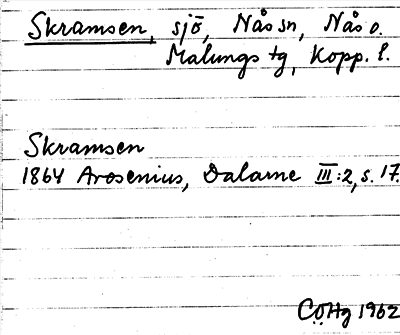 Skramsen, sjö, Nås sn, Nås o.
Malungs tg, Kopp. l.
Skramsen
1864 Arosenius, Dalarne III:2, s. 17.
CÖHg 1962